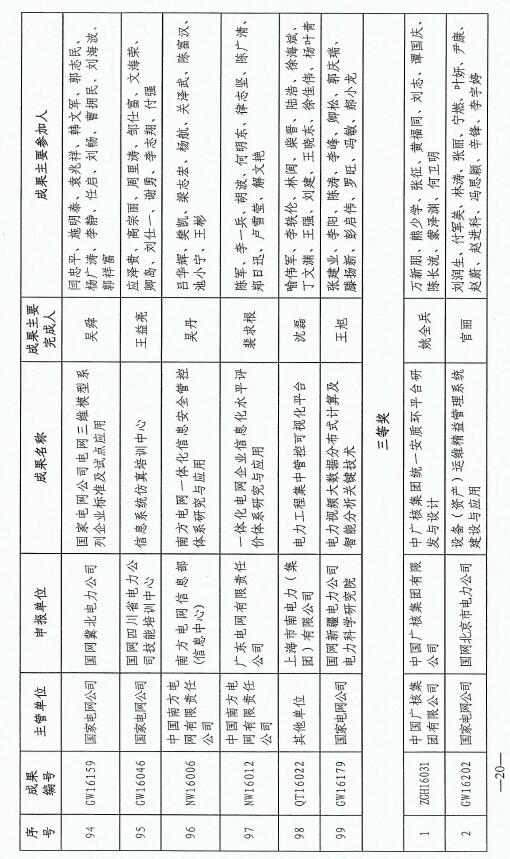 序号 成果编号 主管单位 申报单位 成果名称 成果主要完成人 成果主要参加人
94 GW16159 国家电网公司 国网冀北电力公司 国家电网公司电网三维模型系列企业标准及试点应用 吴舜 闫忠平、施明泰、袁兆祥、韩文军、郭志民、杨广涛、李静、任启、刘杨、曹拥民、刘海波、郭祥富
95 GW16046 国家电网公司 国网四川省电力公司技能培训中心 信息系统仿真培训中心 王益亮 应泽贵、高宗丽、周里涛、邹仕富、文海荣、卿岛、刘仕一、谢勇、李志翔、付强
96 NW16006 中国南方电网有限责任公司 南方电网信息部(信息中心) 南方电网一体化信息安全管控体系研究与应用 吴丹 吕华辉、樊凯、梁志宏、杨航、关泽武、陈富汉、池小宁、王彬
97 NW16012 中国南方电网有限责任公司 广东电网有限责任公司 一体化电网企业信息化水平评价体系研究与应用 裴求根 陈军、李一兵、胡波、何明东、律志坚、陈广清、郑日迅、卢雪莹、解文艳
98 QT16022 其他单位 上海市南电力（集团）有限公司 电力工程集中管控可视化平台 沈磊 喻伟军、李轶伦、林闽、柴晋、陆浩、徐海斌、丁文渊、王强、刘建、王晓东、徐佳伟、杨叶青
99 GW16179 国家电网公司 国网新疆电力公司电力科学研究院 电力视频大数据分布式计算及智能分析关键技术 王旭 张建业、李阳、陈涛、李峰、卿松、郭庆瑞、滕扬新、彭启伟、罗旺、冯敏、郝小龙
三等奖
1 ZGH16031 中国广核集团有限公司 中国广核集团有限公司 中广核集团统一安质环平台研发与设计 姚全兵 万新朋、熊少学、张征、黄福同、刘志、谭国庆、陈长流、蒙泽渊、何卫明
2 GW16202 国家电网公司 国网北京市电力公司 设备（资产）运维精益管理系统建设与应用 官丽 刘润生、付军美、林涛、张丽、宁燃、叶妍、尹康、赵蔚、赵进科、冯思颖、辛锋、李宇婷
—20—